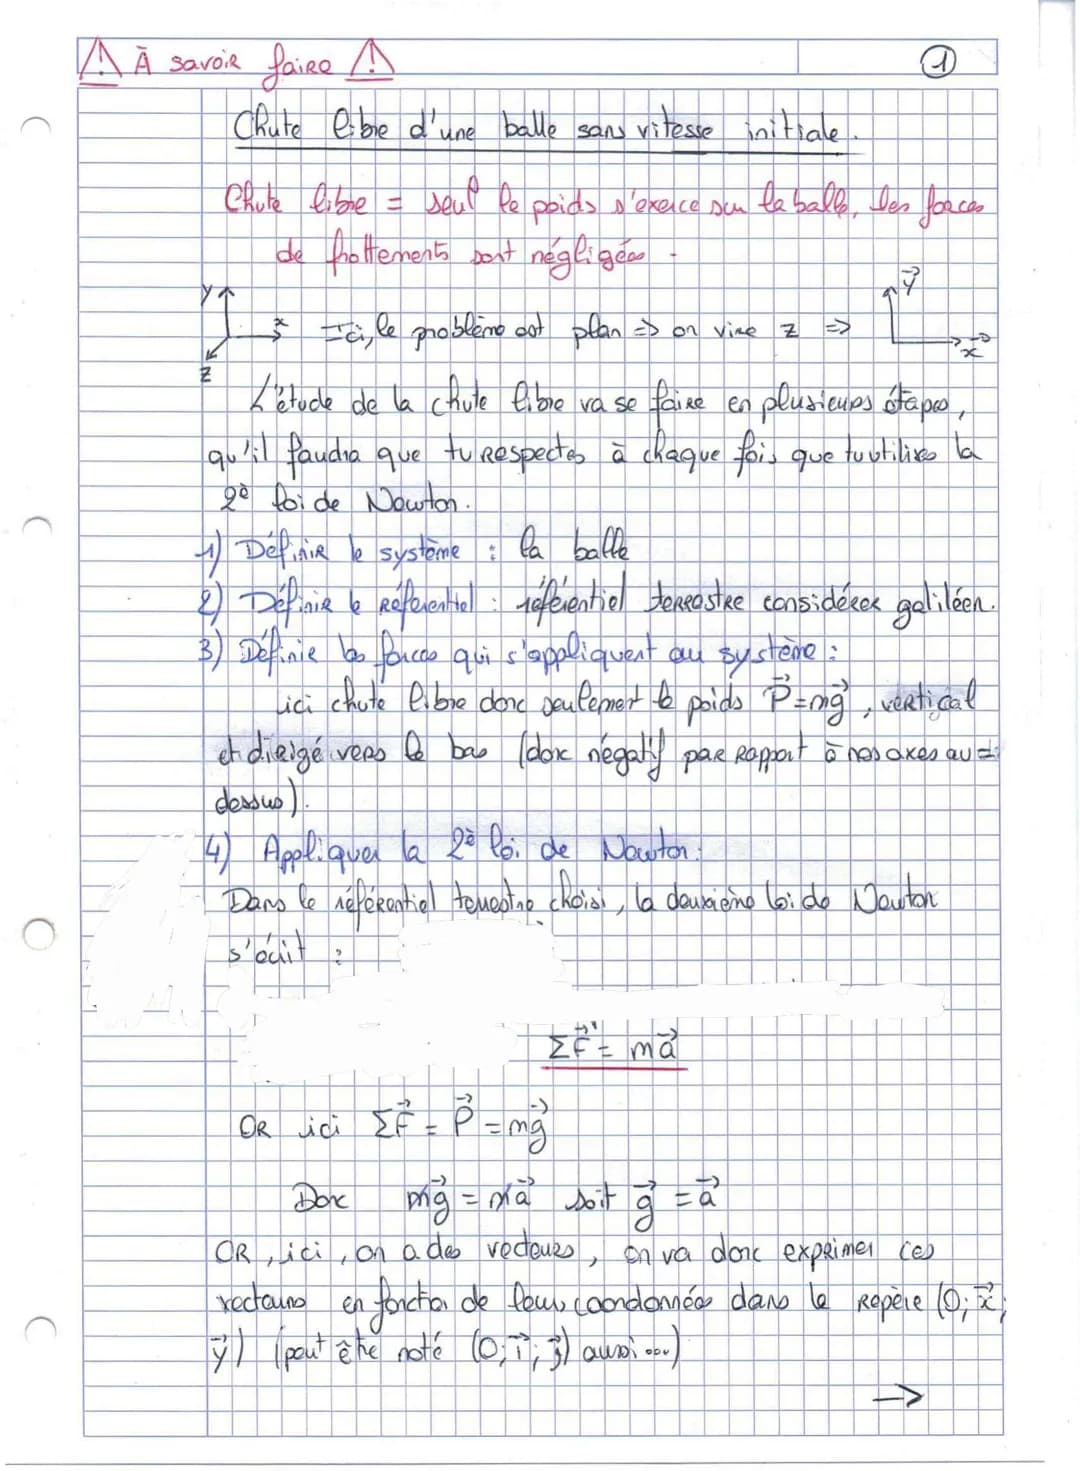 ⚠ À savoir faire ⚠
1
Chute libre d'une balle sans vitesse initiale.
Chute libre = seul le poids s'exerce sur la balle, les forces
de frottements sont négligées.
y
x
z
Ici, le problème est plan => on vire z =>
y⃗
x⃗
L'étude de la chute libre va se faire en plusieurs étapes,
qu'il faudra que tu respectes à chaque fois que tu utilises la
2è loi de Newton.
1) Définir le système : la balle
2) Définir le référentiel : référentiel terrestre considérer galiléen.
3) Définie les forces qui s'appliquent au système :
ici chute libre donc seulement le poids P⃗=mg⃗, vertical
et dirigé vers le bas (donc négatif par rapport à nos axes au-
dessus).
4) Appliquer la 2è loi de Newton:
Dans le référentiel terrestre choisi, la deuxième loi de Newton
s'écrit :
ΣF⃗ = ma⃗
OR ici ΣF⃗ = P⃗ = mg⃗
Donc mg⃗ = ma⃗ soit g⃗ = a⃗
OR, ici, on a des vecteurs, on va donc exprimer ces
vecteurs en fonction de leurs coordonnées dans le repère (O; x⃗;
y⃗) (peut être noté (O; i⃗; j⃗) aussi ...)
->